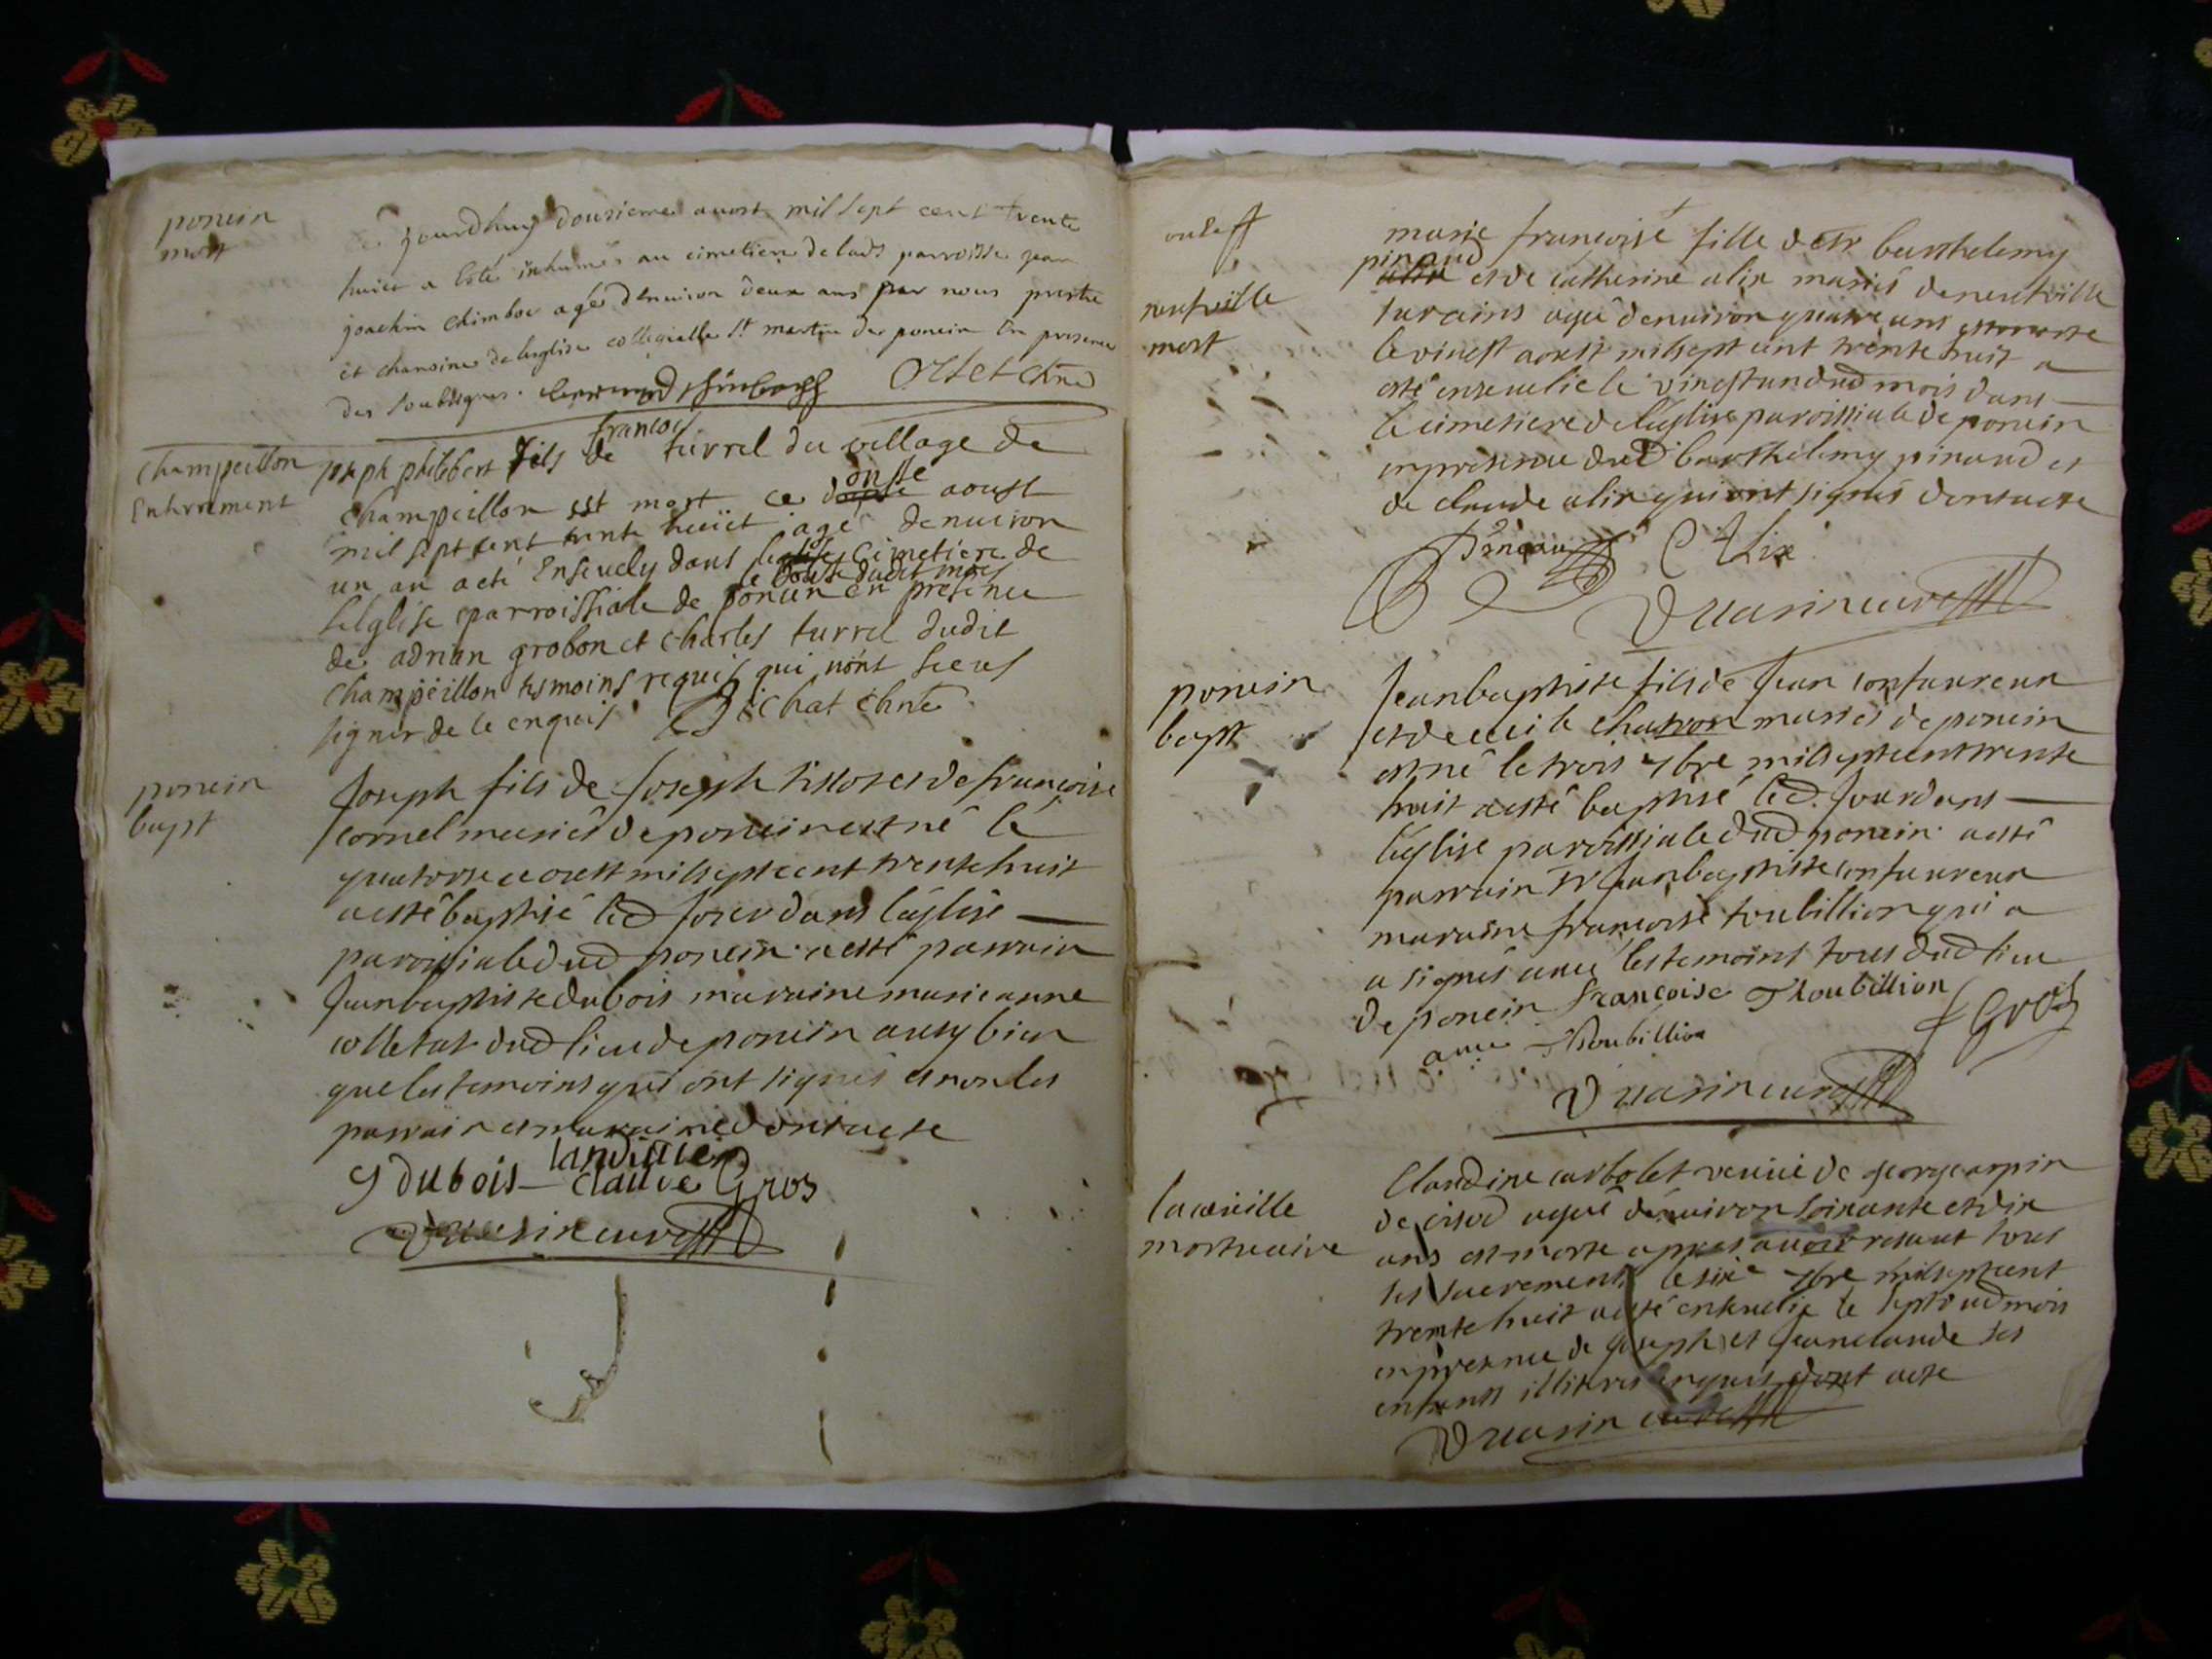 poncin
mort
ce jourdhuy dousieme auost mil sept cent trente
huict a Esté inhumés au cimetiere de lad parroisse jean
joachim Chimboe agé d'enuiron deux ans par nous prestre
et chanoine de leglise collegialle st martin de poncin En presence
des soubsignes.
Champeillon
Enterrement
francoi
joseph philibert fils de turrel du village de
onse
Champeillon est mort ce douse aoust
mil sept cent trente huict agé denuiron
un an a eté Enseuely dans leglise Cimetiere de
le douse dudit mois
leglise parroissiale de poncin en presence
de adrian grobon et Charles turrel dudit
Champeillon tesmoins requis qui nont sceus
signer de ce enquis Bichat chne
poncin
bapt
Joseph fils de Joseph tissot et de françoise
cornel mariés de poncin est né le
quatorse aoust mil sept cent trente huit
a esté baptisé led jour dans léglise
paroissiale dud poncin a esté parrain
Jean baptiste dubois maraine marie anne
colletat dud lieu de poncin aussy bien
que les temoins qui ont signés et non les
parrain et maraine dont acte
J dubois landillier
claude Gros
neufville
mort
marie françoise fille de sr barthelemy
pinaud
alix et de catherine alix mariés de neufville
sur ains agé denuiron quatre ans est morte
le vingt aoust mil sept cent trente huit a
esté enseuelie le vingt un dud mois dans
le cimetiere de léglise paroissiale de poncin
en presence dud barthelemy pinaud et
de claude alix qui ont signés dont acte
Pineau C Alix
poncin
bapt
Jean baptiste fils de Jean confaureux
et de cecile chatron mariés de poncin
est né le trois 7bre mil sept cent trente
huit a esté baptisé led. jour dans
léglise paroissiale dud poncin a esté
parrain sr Jean baptiste confaureux
maraine françoise toubillion qui a
a signés auec les temoins tous dud lieu
de poncin francoise Thoubillion
anne Thoubillion f Gros
la cueille
mortuaire
Claudine carbolet veuue de george arpin
de cisod agée denuiron soixante et dix
ans est morte appres auoir resceut tous
ses sacrements le sixe 7bre mil sept cent
trente huit a esté enseuelie le sept dud mois
en presence de Joseph et Jean claude ses
enfants illiteres enquis dont acte